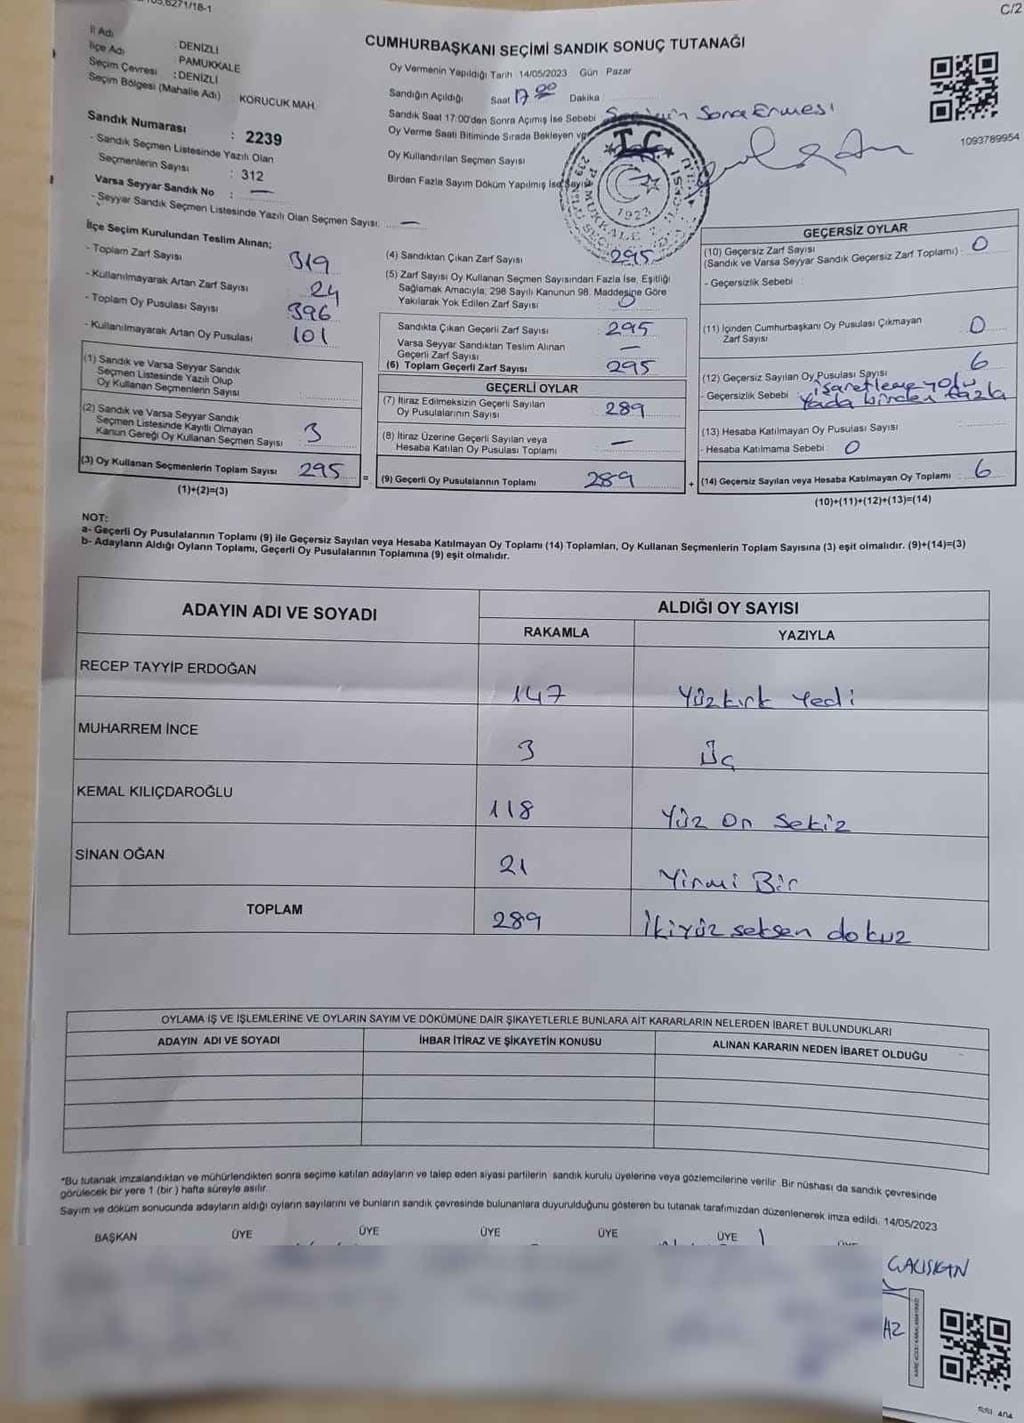 C/2
CUMHURBAŞKANI SEÇİMİ SANDIK SONUÇ TUTANAĞI
İl Adı : DENİZLİ
İlçe Adı : PAMUKKALE
Seçim Çevresi : DENİZLİ
Seçim Bölgesi (Mahalle Adı) : KORUCUK MAH.
Sandık Numarası : 2239
- Sandık Seçmen Listesinde Yazılı Olan
Seçmenlerin Sayısı : 312
Varsa Seyyar Sandık No : —
- Seyyar Sandık Seçmen Listesinde Yazılı Olan Seçmen Sayısı: —
Oy Vermenin Yapıldığı Tarih 14/05/2023 Gün Pazar
Sandığın Açıldığı Saat 17 00 Dakika
Sandık Saat 17:00'den Sonra Açmış İse Sebebi Seçimin Sona Ermesi
Oy Verme Saati Bitiminde Sırada Bekleyen
Oy Kullandırılan Seçmen Sayısı
Birden Fazla Sayım Döküm Yapılmış İse
T.C.
1923
1093789954
İlçe Seçim Kurulundan Teslim Alınan;
- Toplam Zarf Sayısı 319
- Kullanılmayarak Artan Zarf Sayısı 24
- Toplam Oy Pusulası Sayısı 396
- Kullanılmayarak Artan Oy Pusulası 101
(1) Sandık ve Varsa Seyyar Sandık
Seçmen Listesinde Yazılı Olup
Oy Kullanan Seçmenlerin Sayısı
(2) Sandık ve Varsa Seyyar Sandık
Seçmen Listesinde Kayıtlı Olmayan
Kanun Gereği Oy Kullanan Seçmen Sayısı 3
(3) Oy Kullanan Seçmenlerin Toplam Sayısı 295 =
(1)+(2)=(3)
(4) Sandıktan Çıkan Zarf Sayısı 295
(5) Zarf Sayısı Oy Kullanan Seçmen Sayısından Fazla İse, Eşitliği
Sağlamak Amacıyla; 298 Sayılı Kanunun 98. Maddesine Göre
Yakılarak Yok Edilen Zarf Sayısı 0
Sandıkta Çıkan Geçerli Zarf Sayısı : 295
Varsa Seyyar Sandıktan Teslim Alınan
Geçerli Zarf Sayısı —
(6) Toplam Geçerli Zarf Sayısı 295
GEÇERLİ OYLAR
(7) İtiraz Edilmeksizin Geçerli Sayılan
Oy Pusulalarının Sayısı 289
(8) İtiraz Üzerine Geçerli Sayılan veya
Hesaba Katılan Oy Pusulası Toplamı —
(9) Geçerli Oy Pusulalarının Toplamı 289 +
GEÇERSİZ OYLAR
(10) Geçersiz Zarf Sayısı
(Sandık ve Varsa Seyyar Sandık Geçersiz Zarf Toplamı) : 0
- Geçersizlik Sebebi :
(11) İçinden Cumhurbaşkanı Oy Pusulası Çıkmayan
Zarf Sayısı 0
(12) Geçersiz Sayılan Oy Pusulası Sayısı 6
- Geçersizlik Sebebi işaretleme yolu
Yada birden fazla
(13) Hesaba Katılmayan Oy Pusulası Sayısı
- Hesaba Katılmama Sebebi: 0
(14) Geçersiz Sayılan veya Hesaba Katılmayan Oy Toplamı : 6
(10)+(11)+(12)+(13)=(14)
NOT:
a- Geçerli Oy Pusulalarının Toplamı (9) ile Geçersiz Sayılan veya Hesaba Katılmayan Oy Toplamı (14) Toplamları, Oy Kullanan Seçmenlerin Toplam Sayısına (3) eşit olmalıdır. (9)+(14)=(3)
b- Adayların Aldığı Oyların Toplamı, Geçerli Oy Pusulalarının Toplamına (9) eşit olmalıdır.
ADAYIN ADI VE SOYADI
ALDIĞI OY SAYISI
RAKAMLA
YAZIYLA
RECEP TAYYİP ERDOĞAN 147 Yüzkırk Yedi
MUHARREM İNCE 3 Üç
KEMAL KILIÇDAROĞLU 118 Yüz On Sekiz
SİNAN OĞAN 21 Yirmi Bir
TOPLAM 289 İkiyüz seksen dokuz
OYLAMA İŞ VE İŞLEMLERİNE VE OYLARIN SAYIM VE DÖKÜMÜNE DAİR ŞİKAYETLERLE BUNLARA AİT KARARLARIN NELERDEN İBARET BULUNDUKLARI
ADAYIN ADI VE SOYADI
İHBAR İTİRAZ VE ŞİKAYETİN KONUSU
ALINAN KARARIN NEDEN İBARET OLDUĞU
*Bu tutanak imzalandıktan ve mühürlendikten sonra seçime katılan adayların ve talep eden siyasi partilerin sandık kurulu üyelerine veya gözlemcilerine verilir. Bir nüshası da sandık çevresinde
görülecek bir yere 1 (bir) hafta süreyle asılır.
Sayım ve döküm sonucunda adayların aldığı oyların sayılarını ve bunların sandık çevresinde bulunanlara duyurulduğunu gösteren bu tutanak tarafımızdan düzenlenerek imza edildi. 14/05/2023
BAŞKAN ÜYE ÜYE ÜYE ÜYE ÜYE